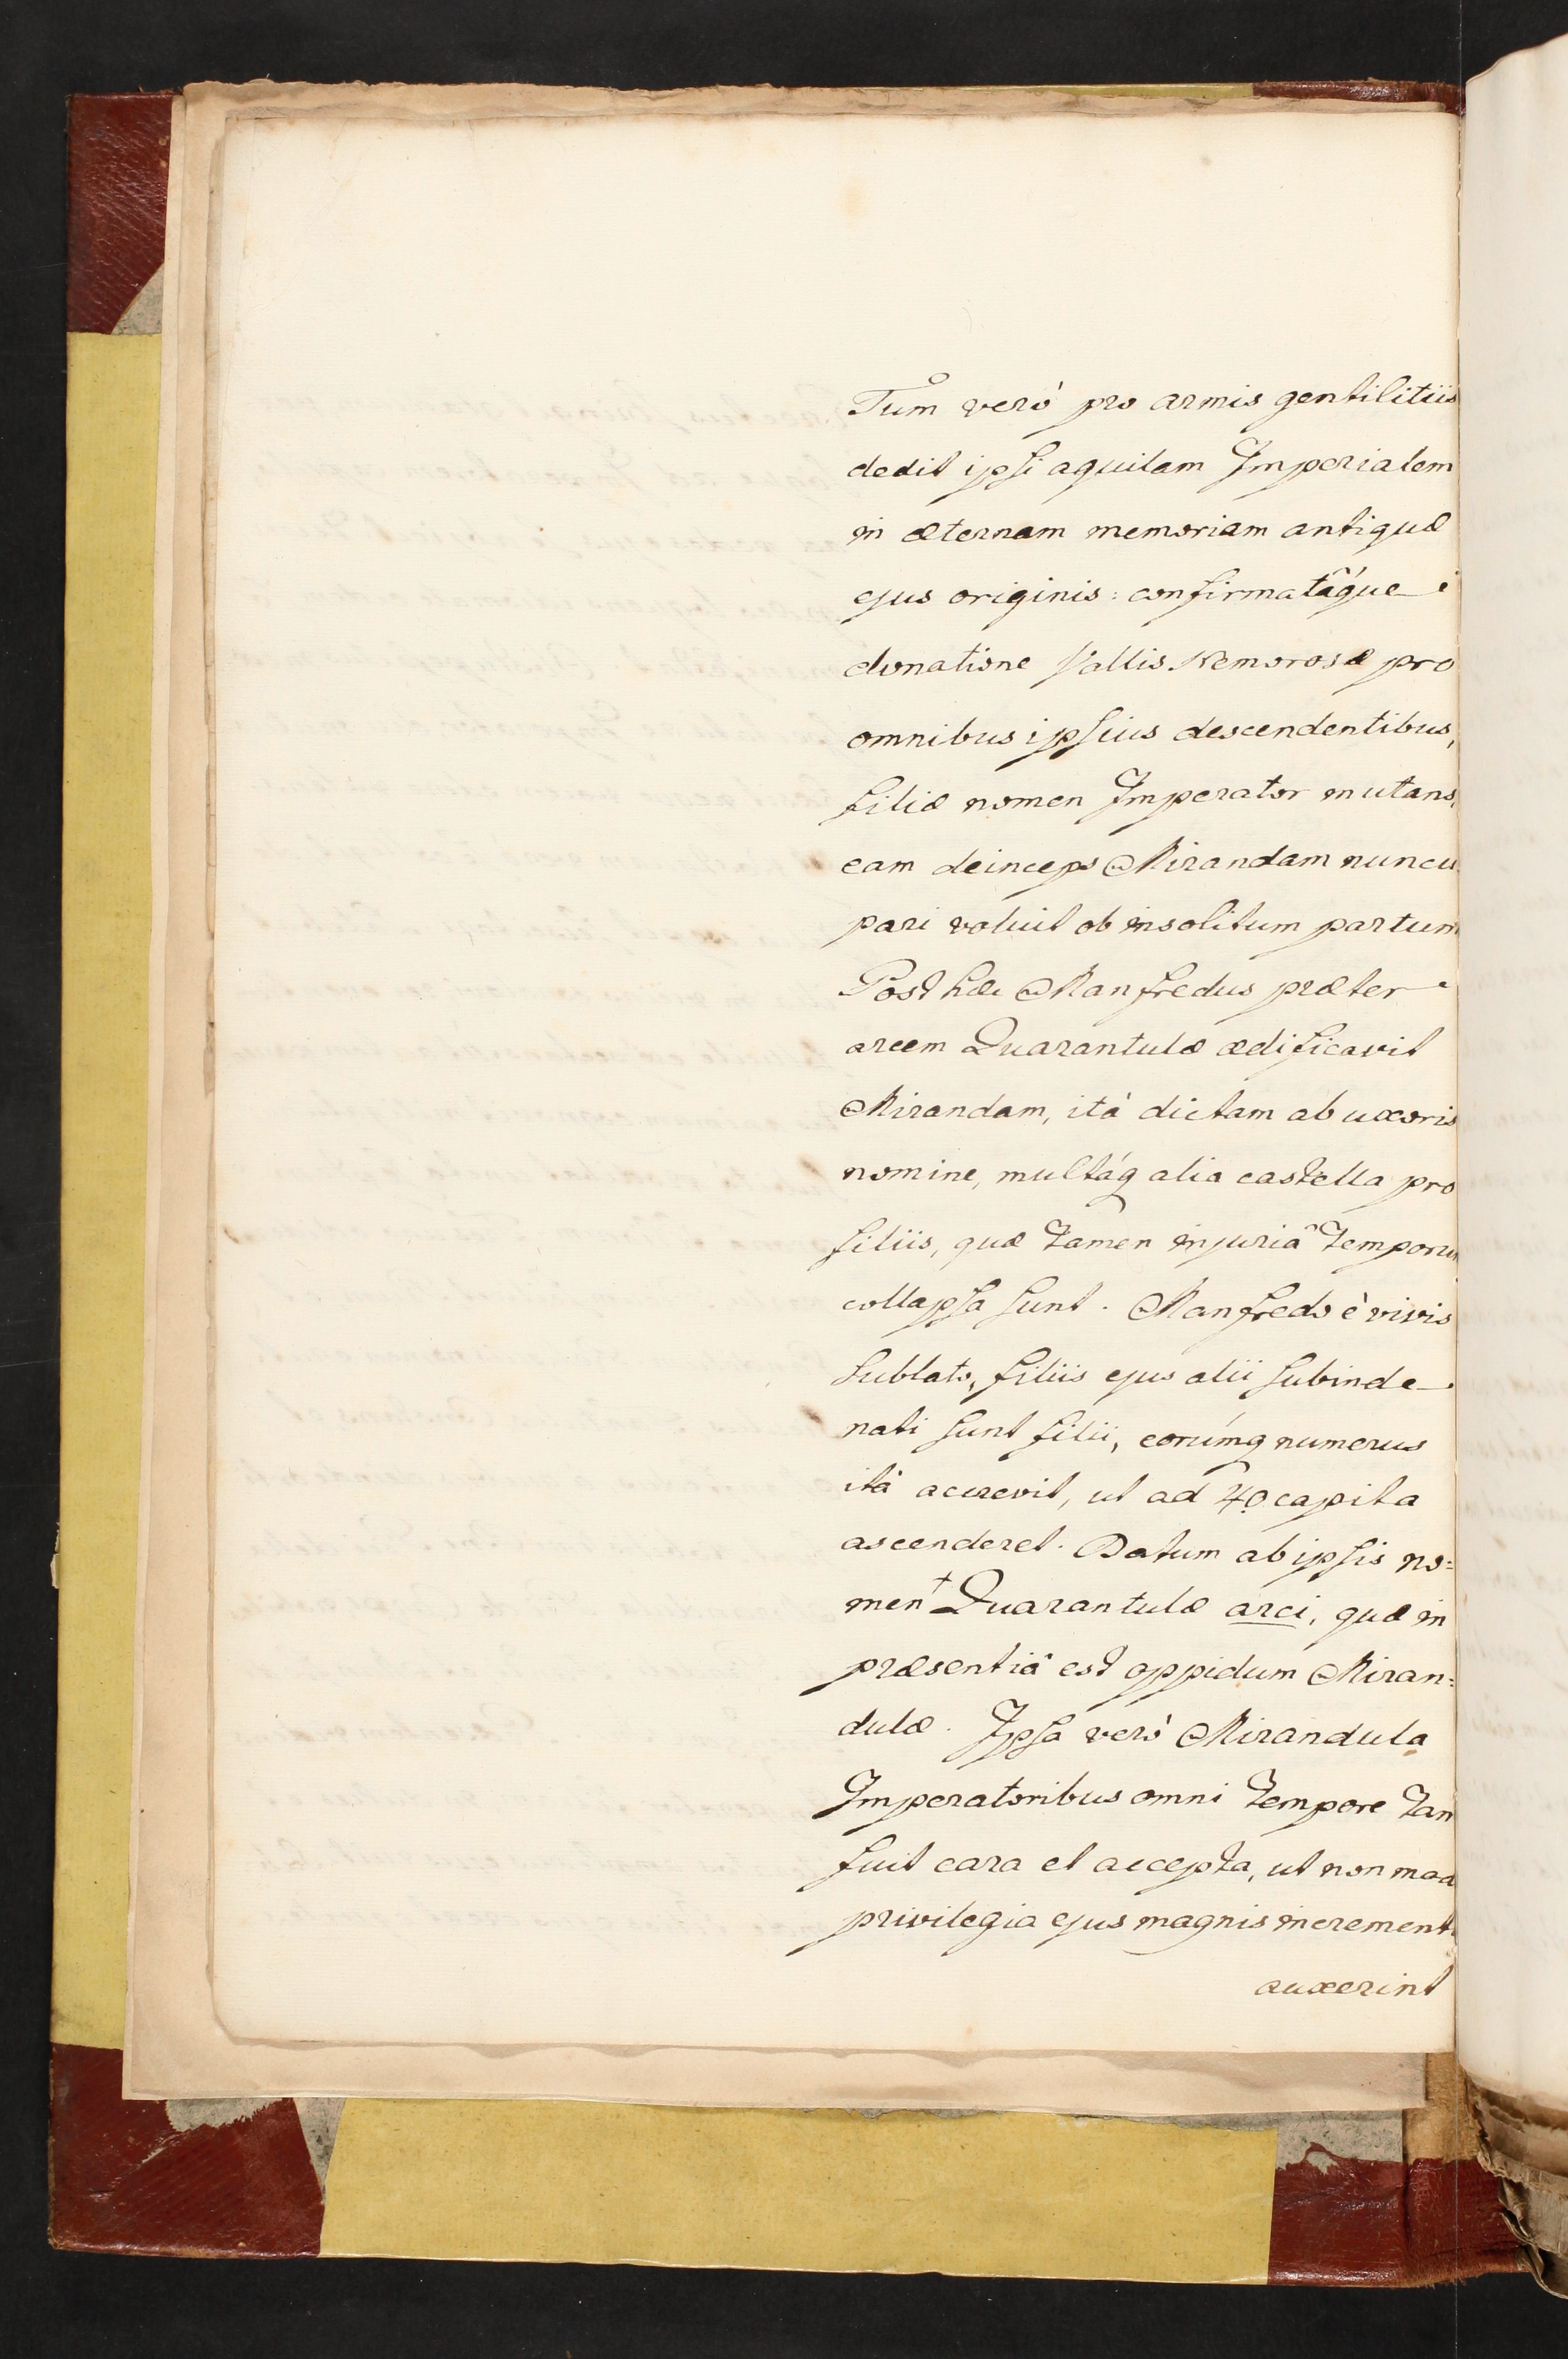 Tum verò pro armis gentilitiis
dedit ipsi aquilam Imperialem
in æternam memoriam antiquæ
ejus originis: confirmatấque
donatione Vallis Nemorosæ pro
omnibus ipsius descendentibus,
filiæ nomen Imperator mutans,
eam deinceps Mirandam nuncu
pari voluit ob insolitum partum
Post hæc Manfredus præter
arcem Quarantulæ ædificavit
Mirandam, ità dictam ab uxoris
nomine, multáq alia castella pro
filiis, quæ tamen injuriâ temporu
collapsa sunt. Manfredo è vivis
sublato, filiis ejus alii subinde
nati sunt filii, eorúmq numerus
ità accrevit, ut ad 40 capita
ascenderet. Datum ab ipsis no=
men + Quarantulæ arci, quæ in
præsentiâ est oppidum Miran=
dulæ. Ipsa verò Mirandula
Imperatoribus omni tempore tan
fuit cara et accepta, ut non mod
privilegia ejus magnis increment
auxerint